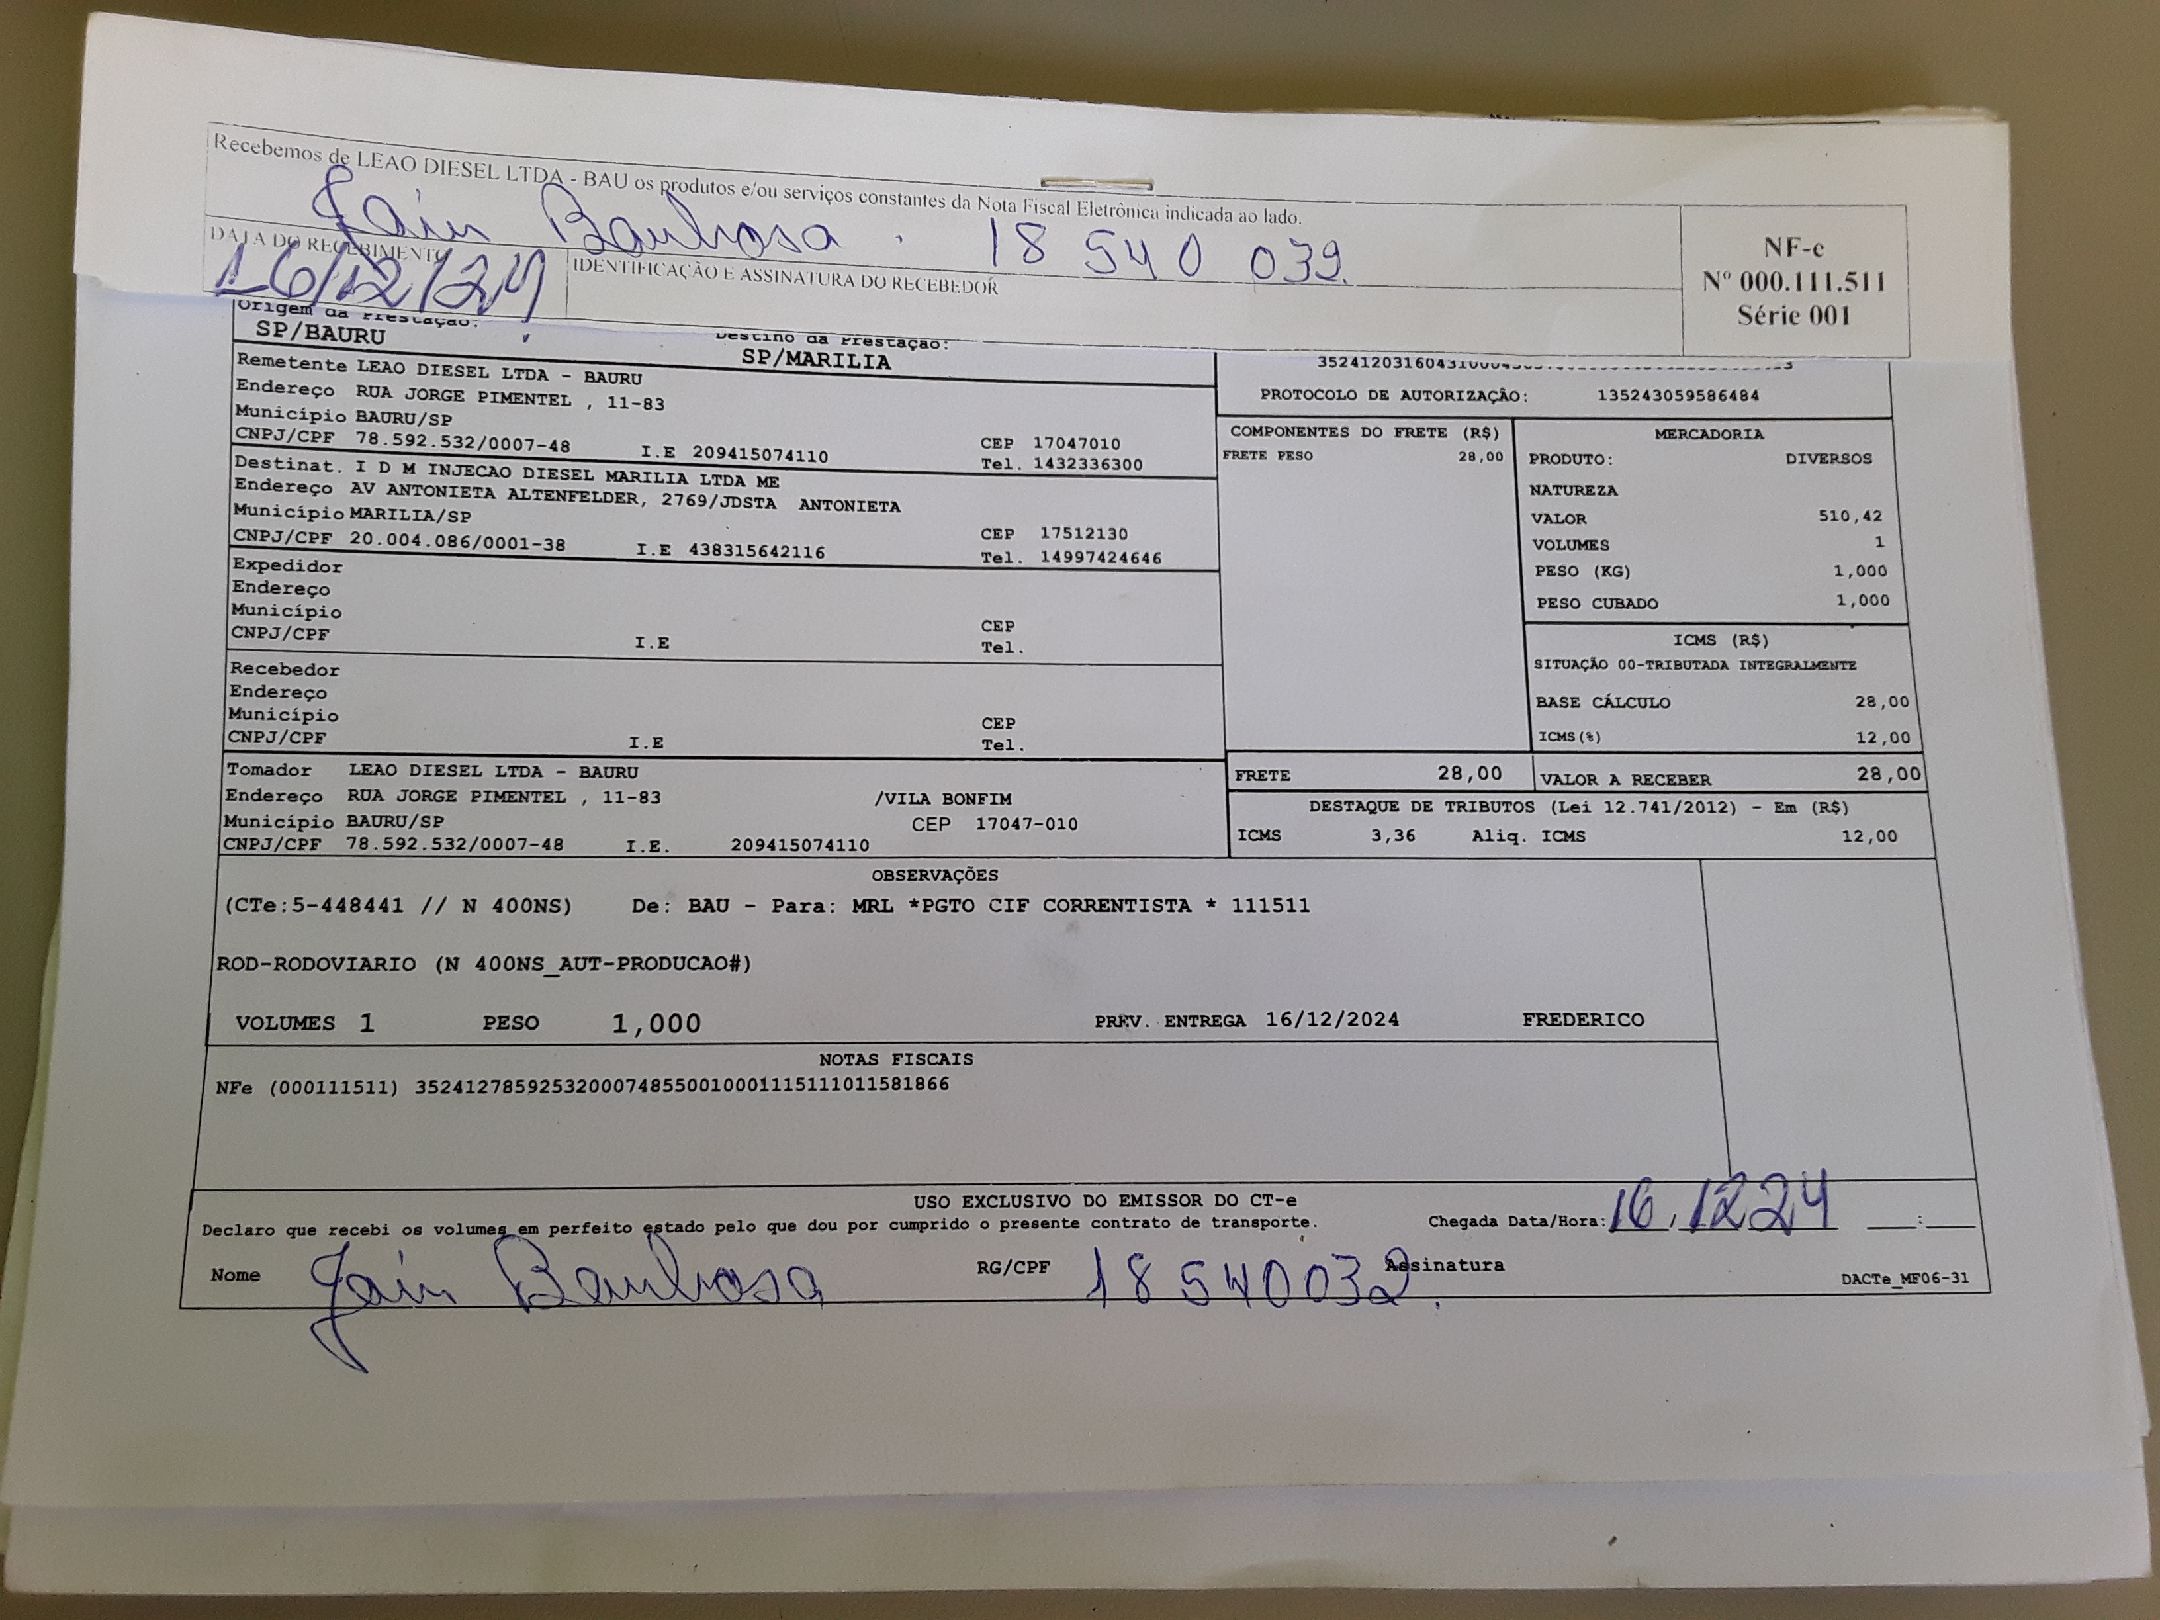 Recebemos de LEAO DIESEL LTDA - BAU os produtos e/ou serviços constantes da Nota Fiscal Eletrônica indicada ao lado.
Jair Barbosa. 18 540 032.
DATA DO RECEBIMENTO
16/12/24
IDENTIFICAÇÃO E ASSINATURA DO RECEBEDOR
NF-e
Nº 000.111.511
Série 001
Origem da Prestação:
SP/BAURU
Destino da Prestação:
SP/MARILIA
Remetente LEAO DIESEL LTDA - BAURU
Endereço RUA JORGE PIMENTEL , 11-83
Município BAURU/SP
CNPJ/CPF 78.592.532/0007-48 I.E 209415074110
CEP 17047010
Tel. 1432336300
Destinat. I D M INJECAO DIESEL MARILIA LTDA ME
Endereço AV ANTONIETA ALTENFELDER, 2769/JDSTA ANTONIETA
Município MARILIA/SP
CNPJ/CPF 20.004.086/0001-38 I.E 438315642116
CEP 17512130
Tel. 14997424646
Expedidor
Endereço
Município
CNPJ/CPF I.E
CEP
Tel.
Recebedor
Endereço
Município
CNPJ/CPF I.E
CEP
Tel.
Tomador LEAO DIESEL LTDA - BAURU
Endereço RUA JORGE PIMENTEL , 11-83 /VILA BONFIM
Município BAURU/SP CEP 17047-010
CNPJ/CPF 78.592.532/0007-48 I.E. 209415074110
PROTOCOLO DE AUTORIZAÇÃO: 135243059586484
COMPONENTES DO FRETE (R$)
FRETE PESO 28,00
MERCADORIA
PRODUTO: DIVERSOS
NATUREZA
VALOR 510,42
VOLUMES 1
PESO (KG) 1,000
PESO CUBADO 1,000
ICMS (R$)
SITUAÇÃO 00-TRIBUTADA INTEGRALMENTE
BASE CÁLCULO 28,00
ICMS(%) 12,00
FRETE 28,00 VALOR A RECEBER 28,00
DESTAQUE DE TRIBUTOS (Lei 12.741/2012) - Em (R$)
ICMS 3,36 Aliq. ICMS 12,00
OBSERVAÇÕES
(CTe:5-448441 // N 400NS) De: BAU - Para: MRL *PGTO CIF CORRENTISTA * 111511
ROD-RODOVIARIO (N 400NS_AUT-PRODUCAO#)
VOLUMES 1 PESO 1,000 PREV. ENTREGA 16/12/2024 FREDERICO
NOTAS FISCAIS
NFe (000111511) 35241278592532000748550010001115111011581866
USO EXCLUSIVO DO EMISSOR DO CT-e
Declaro que recebi os volumes em perfeito estado pelo que dou por cumprido o presente contrato de transporte. Chegada Data/Hora: 16/12 24 __:__
Nome Jair Barbosa RG/CPF 18 540032. Assinatura
DACTe_MF06-31